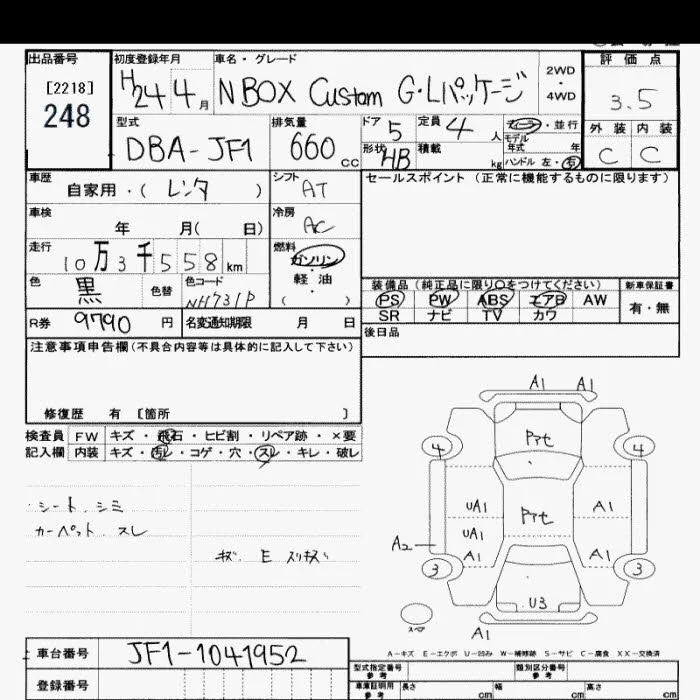 出品番号 初度登録年月 車名・グレード 評価点
[2218] 2WD
248 H24 4月 N BOX Custom G・Lパッケージ ・ 4WD 3.5
型式 排気量 ドア 定員 ・並行 外装 内装
DBA-JF1 660cc 5 4人 モデル年式 年 C C
形状 HB 積載 kg ハンドル 左・右
車歴 自家用・( レンタ ) シフト AT セールスポイント (正常に機能するものに限ります)
車検 年 月( 日) 冷房 AC
走行 10万3千558km 燃料 ガソリン
軽油
( ・ )
色 黒 色替 色コード NH731P 装備品 (純正品に限り○をつけてください) 新車保証書
PS PW ABS エアB AW 有・無
SR ナビ TV カワ
R券 9790 円 名変通知期限 月 日 後日品
注意事項申告欄(不具合内容等は具体的に記入して下さい)
修復歴 有 [箇所 ]
検査員 FW キズ・飛石・ヒビ割・リペア跡・×要
記入欄 内装 キズ・汚レ・コゲ・穴・スレ・キレ・破レ
シート、シミ
カーペット、スレ
キズ、E スリキズ
A1 A1
4 Prt 4
UA1 Prt A1
UA1
A2 A1 A1
3 U3 3
スペア A1
A-キズ E-エクボ U-凹み W-補修跡 S-サビ C-腐食 XX-交換済
車台番号 JF1-1041952
型式指定番号 参考 類別区分番号 参考
登録番号 車庫証明用 参考 長さ cm 幅 cm 高さ cm